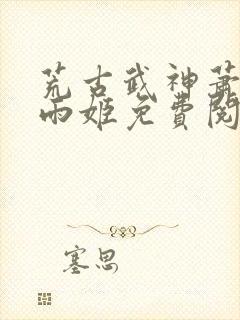 荒古武神萧
雨姬免費閱
塞思